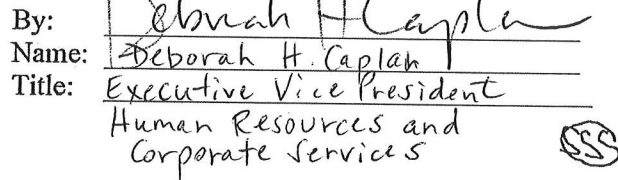 By: Deborah H Caplan
Name: Deborah H. Caplan
Title: Executive Vice President
Human Resources and
Corporate Services
SSS